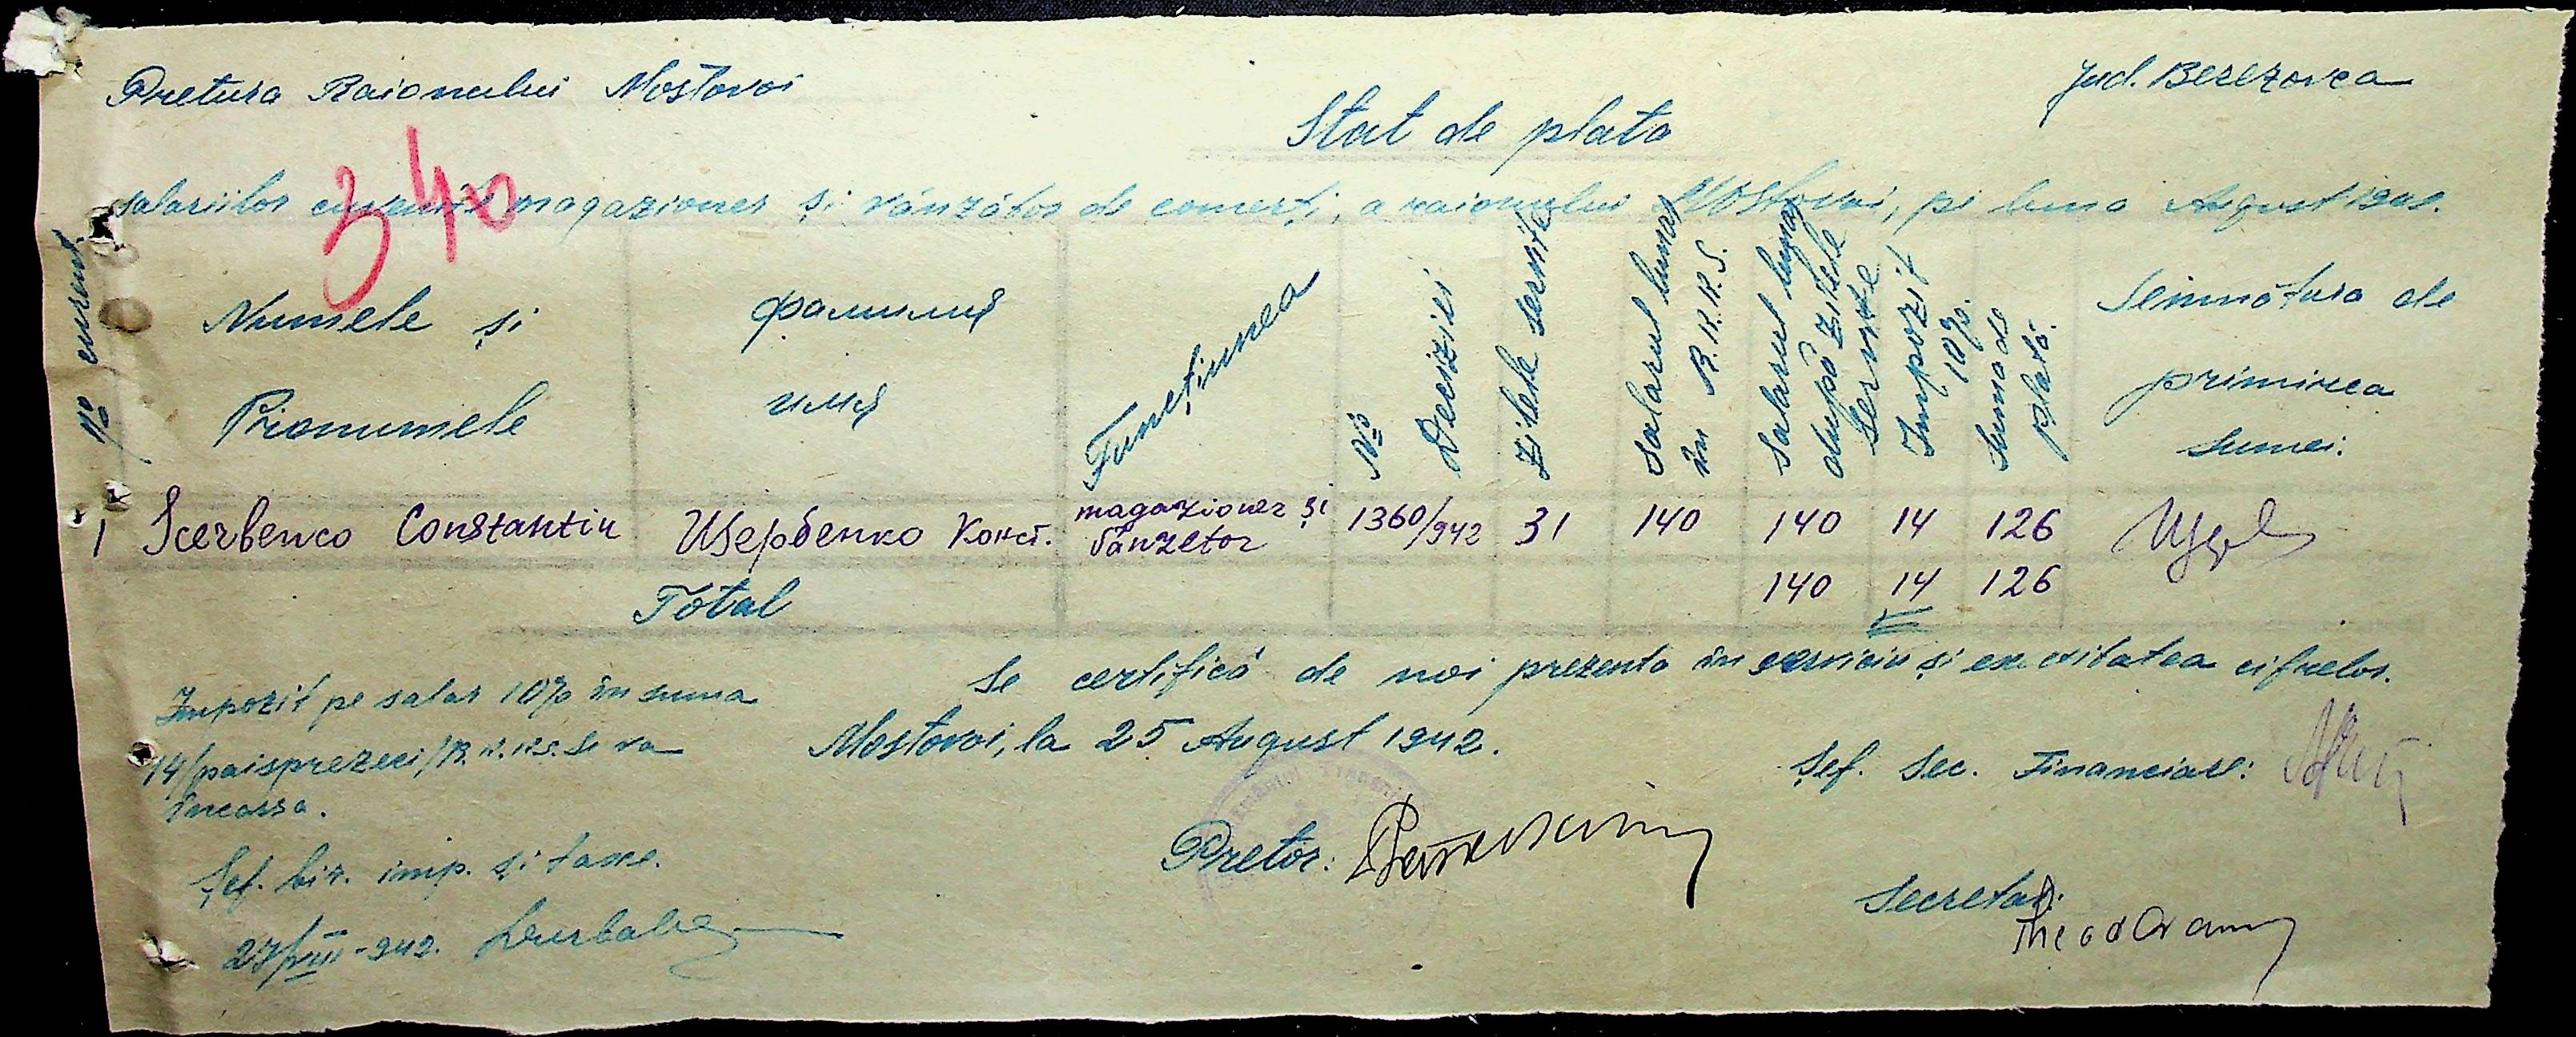 Pretura Raionului Mostovoi
Jud. Berezovca
Stat de plata
340
salariilor cuvenite magazioner și vânzător de comerț, a raionului Mostovoi, pe luna August 1942.
No curent
Numele și
Pronumele
фамилия
имя
Funcțiunea
No
Deciziei
Zilele servite
Salarul lunar
în R.K.K.S.
Salarul lunar
după zilele
servite
Impozit
10%
Suma de
plată.
Semnătura de
primirea
sumei:
1 Scerbenco Constantin Щербенко Конст. magazioner și vânzetor 1360/942 31 140 140 14 126
Total 140 14 126
Se certifică de noi prezenta în serviciu și exactitatea cifrelor.
Impozit pe salar 10% în suma
14/paisprezeci/R.K.K.S. se va
încassa.
Mostovoi, la 25 August 1942.
Șef. Sec. Financiare:
Pretor:
Șef. bir. imp. și taxe.
27/VIII-942.
Secretar: